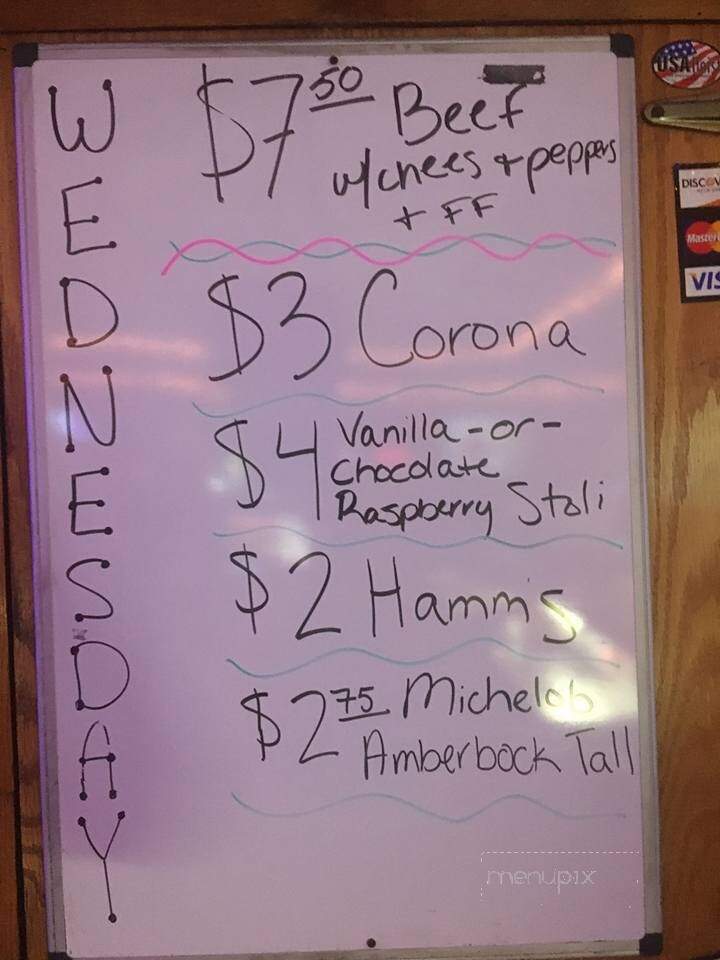 WEDNESDAY
$7.50 Beef
w/chees + peppers
+ FF
$3 Corona
$4 Vanilla -or-
Chocolate
Raspberry Stoli
$2 Hamm's
$2.75 Michelob
Amberbock Tall
USA
DISCOV
Master
VIS
menupix